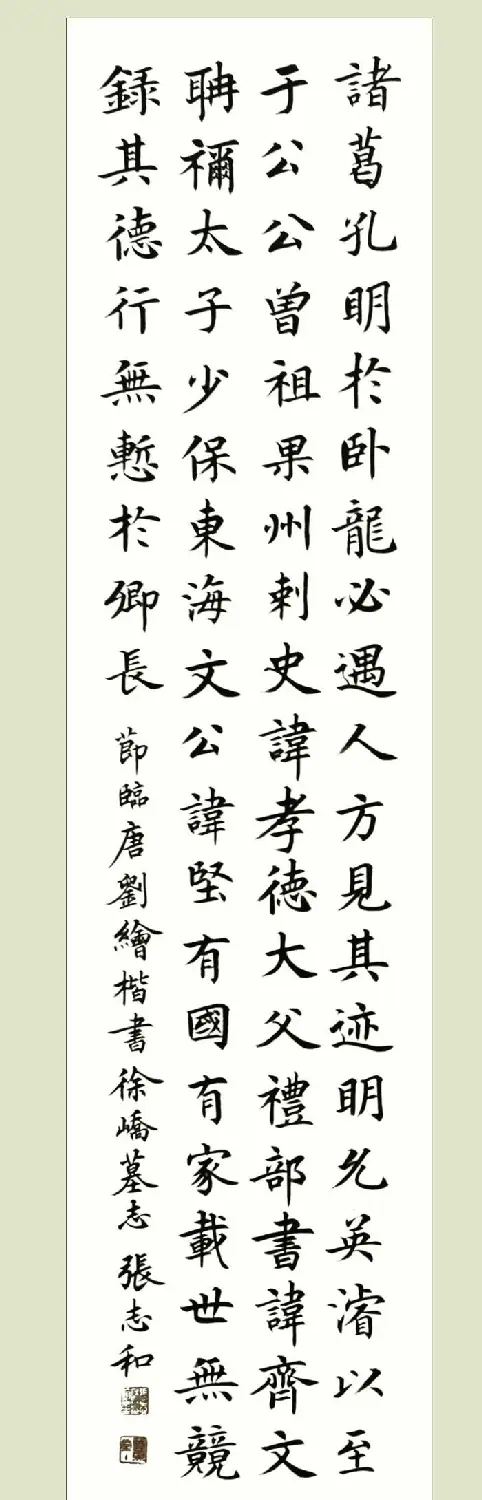 諸葛孔明於卧龍必遇人方見其迹明允英濬以至
于公公曾祖果州刺史諱孝德大父禮部書諱齊文
聃禰太子少保東海文公諱堅有國有家載世無競
録其德行無慙於卿長 節臨唐劉繪楷書徐嶠墓志 張志和